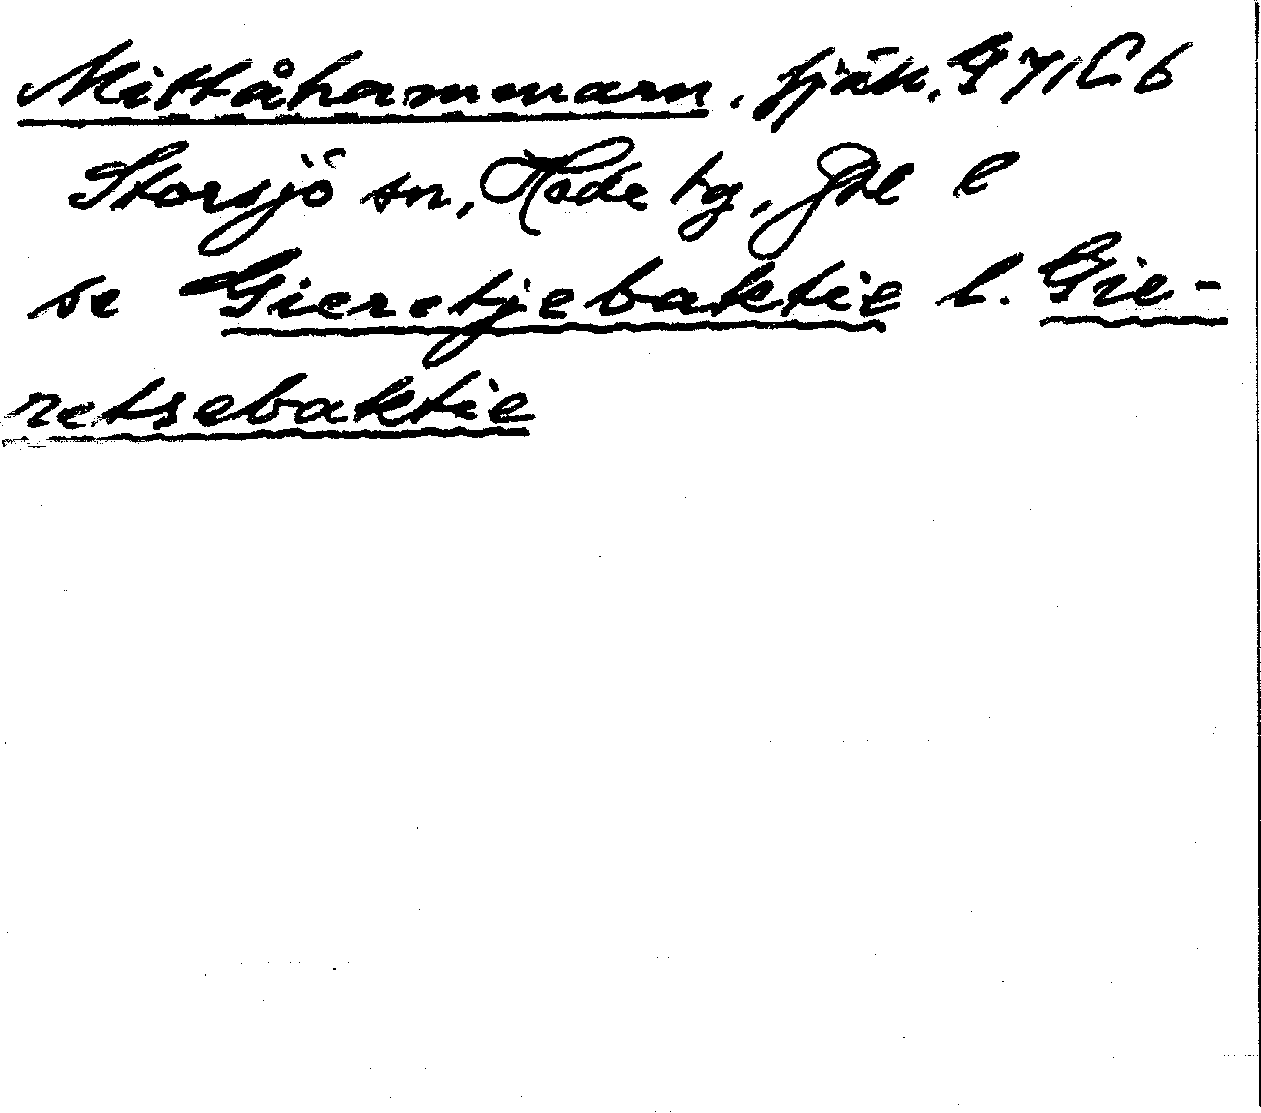 Mittåhammarn, fjäll, G 71 C b
Storsjö sn, Hede tg, Jtl l
se Gieretjebaktie l. Gie-
retsebaktie